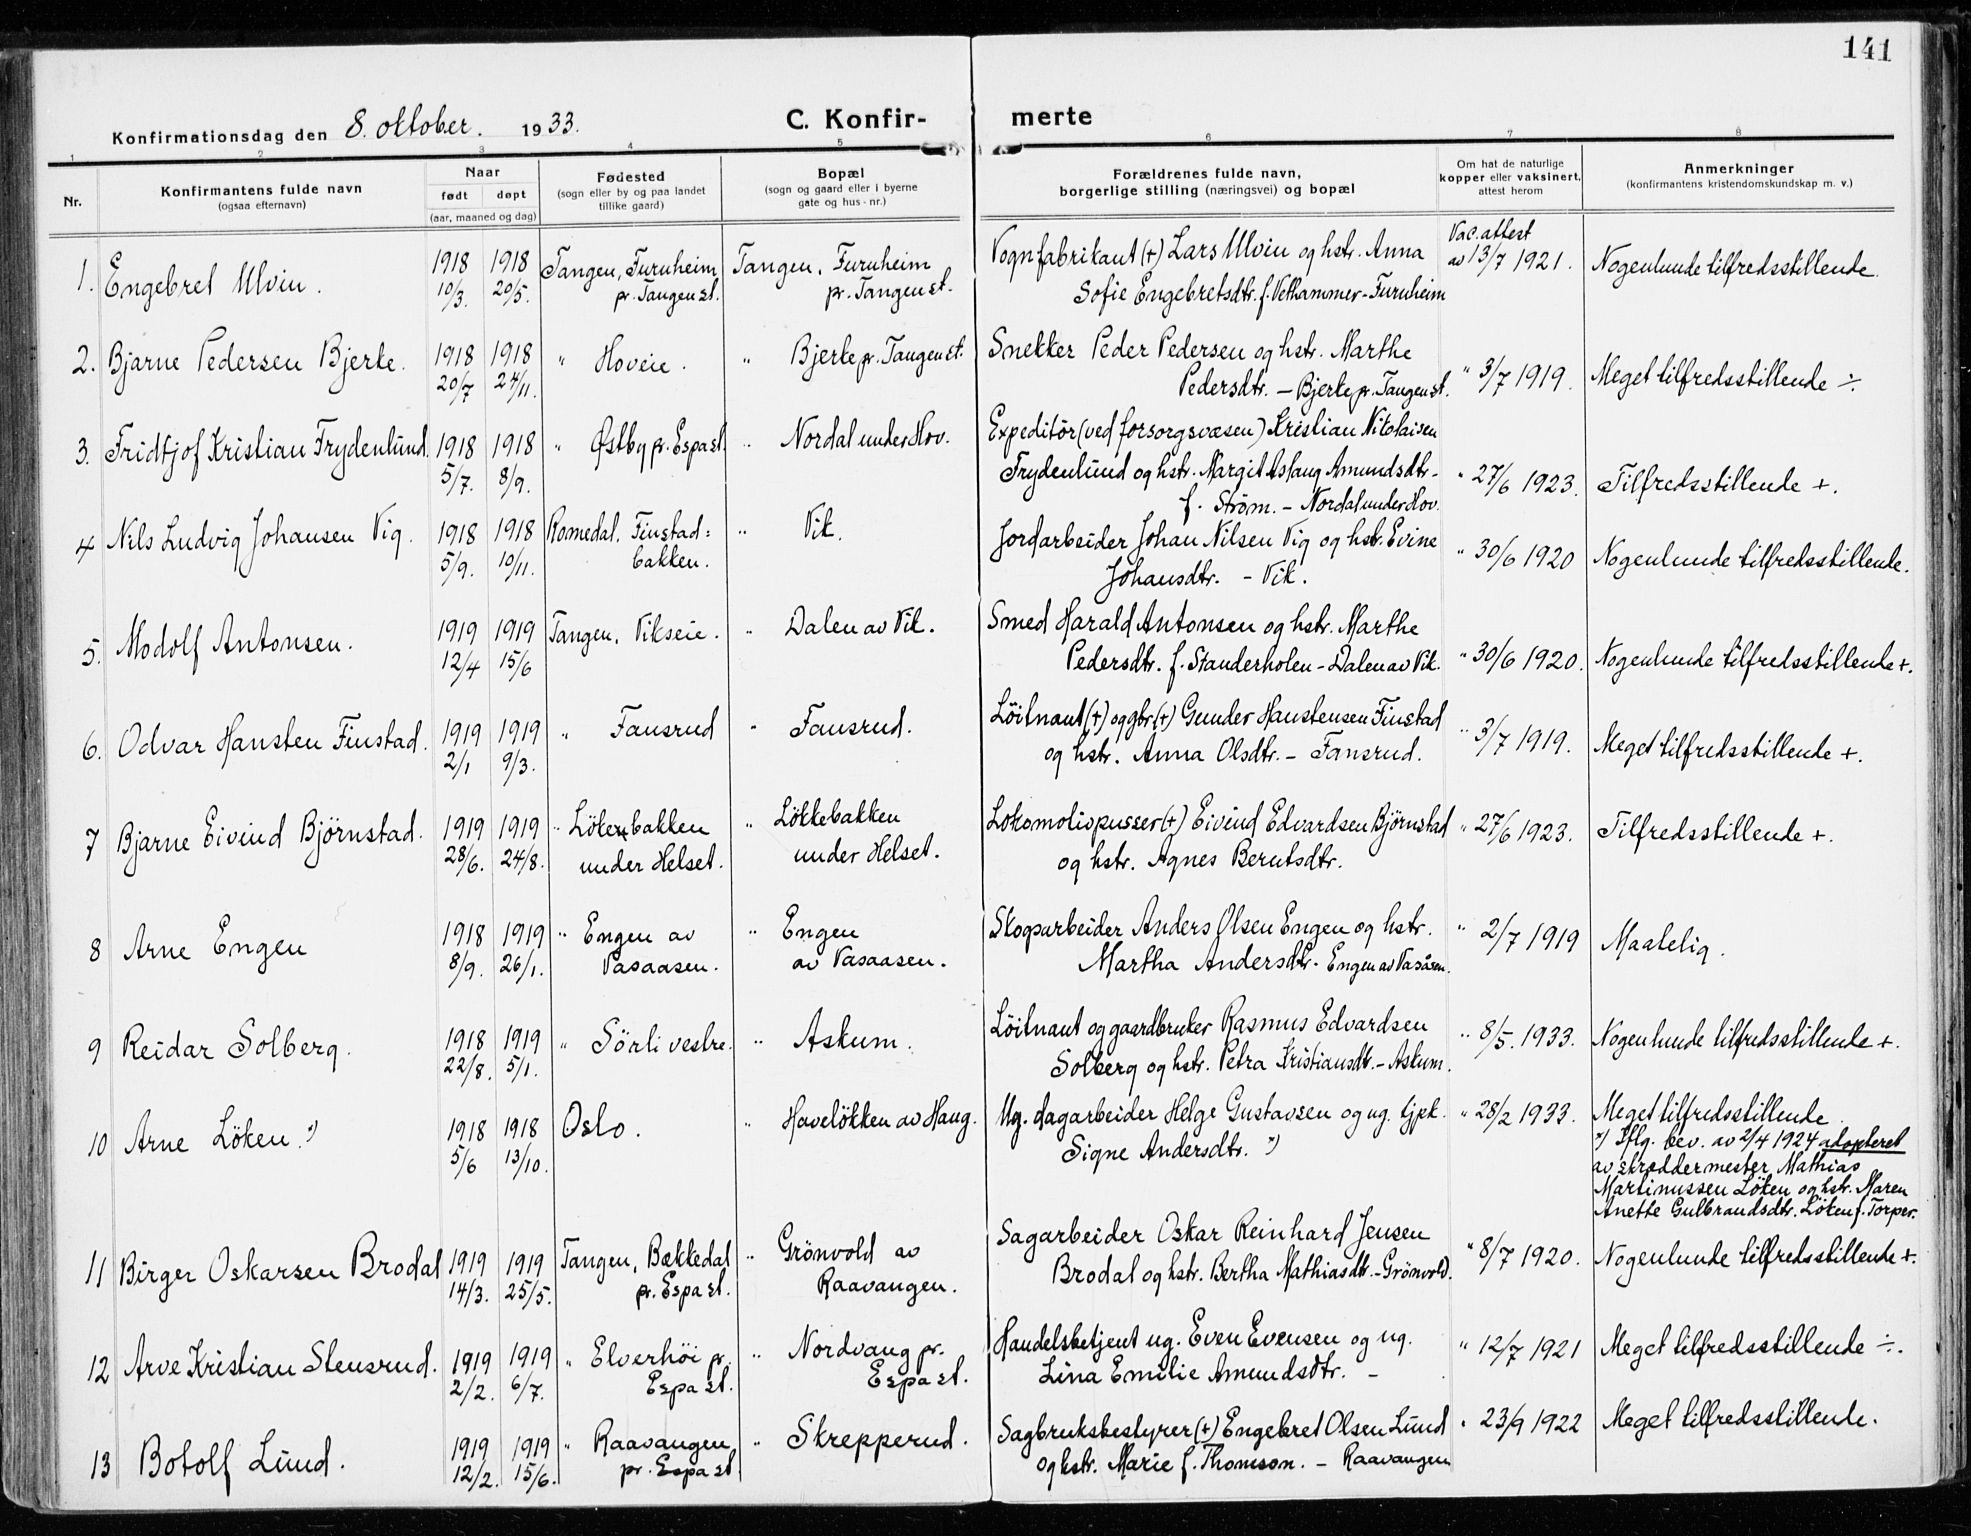 141
Konfirmationsdag den 8. oktober. 1933.
C. Konfir- merte
1 2 3 4 5 6 7 8
Nr.
Konfirmantens fulde navn
(ogsaa efternavn)
Naar
født døpt
(aar, maaned og dag)
Fødested
(sogn eller by og paa landet
tillike gaard)
Bopæl
(sogn og gaard eller i byerne
gate og hus-nr.)
Forældrenes fulde navn,
borgerlige stilling (næringsvei) og bopæl
Om hat de naturlige
kopper eller vaksinert,
attest herom
Anmerkninger
(konfirmantens kristendomskundskap m. v.)
1. Engebret Ulvin. 1918 1918 Tangen, Furuheim Tangen, Furuheim Vognfabrikant (+) Lars Ulvin og hstr. Anna Vac. attest
10/3. 20/5. pr. Tangen st. pr. Tangen st. Sofie Engebretsdtr. f. Vethammer - Furuheim av 13/7 1921. Nogenlunde tilfredsstillende.
2. Bjarne Pedersen Bjerke. 1918 1918 " Hoveie. " Bjerke pr. Tangen st. Snekker Peder Pedersen og hstr. Marthe
20/7 24/11. Pedersdtr. - Bjerke pr. Tangen st. " 3/7 1919. Meget tilfredsstillende ÷.
3. Fridtjof Kristian Frydenlund. 1918 1918 " Østby pr. Espa st. " Nordal under Hov. Expeditör (ved forsorgsvæsen) Kristian Nikolaisen
5/7. 8/9. Frydenlund og hstr. Margit Aslaug Amundsdtr - " 27/6 1923. Tilfredsstillende +.
f. Strøm. - Nordal under Hov.
4 Nils Ludvig Johansen Vig. 1918 1918 Romedal, Finstad= " Vik. Jordarbeider Johan Nilsen Vig og hstr. Evine
5/9. 10/11. bakken. Johansdtr. - Vik. " 30/6 1920 Nogenlunde tilfredsstillende.
5. Modolf Antonsen. 1919 1919 Tangen, Vikseie. " Dalen av Vik. Smed Harald Antonsen og hstr. Marthe
12/4 15/6 Pedersdtr. f. Standerholen - Dalen av Vik. " 30/6 1920. Nogenlunde tilfredsstillende +.
6. Odvar Hansten Finstad. 1919 1919 " Fansrud " Fansrud. Löitnant (+) og gbr (+) Gunder Hanstensen Finstad
2/1 9/3. og hstr. Anna Olsdtr. - Fansrud. " 3/7 1919. Meget tilfredsstillende +.
7 Bjarne Eivind Björnstad. 1919 1919 " Lökenbakken " Lökkebakken Lokomotivpusser (+) Eivind Edvardsen Björnstad " 27/6 1923. Tilfredsstillende +.
28/6. 24/8. under Helset. under Helset. og hstr. Agnes Berntsdtr.
8 Arne Engen 1918 1919 " Engen av " Engen Skogsarbeider Anders Olsen Engen og hstr. " 2/7 1919 Maatelig.
8/9. 26/1. Vasaasen. av Vasaasen. Martha Andersdtr. - Engen av Vasåsen.
9 Reidar Solberg. 1918 1919 " Sörli vestre. " Askum. Löitnant og gaardbruker Rasmus Edvardsen " 8/5. 1933. Nogenlunde tilfredsstillende +.
22/8. 5/1. Solberg og hstr. Petra Kristiansdtr. - Askum.
10 Arne Löken. *) 1918 1918 Oslo. " Havelökken av Haug. Ug. dagarbeider Helge Gustavsen og ug. tjpk. " 28/2 1933. Meget tilfredsstillende.
5/6 13/10. Signe Andersdtr. *) *) Iflg. bev. av 2/4 1924 adopteret
av skræddermester Mathias
Martinussen Löken og hstr. Maren
Anette Gulbrandsdtr. Löken f. Torper.
11 Birger Oskarsen Brodal 1919 1919 Tangen, Bækkedal " Grönvold av Sagarbeider Oskar Reinhard Jensen " 8/7 1920. Nogenlunde tilfredsstillende +.
14/3. 25/5. pr. Espa st. Raavangen. Brodal og hstr. Bertha Mathiasdtr. - Grönvold.
12 Arve Kristian Stensrud. 1919 1919 " Elverhöi pr. " Nordvang pr. Handelsbetjent ug. Even Evensen og ug. " 12/7 1921 Meget tilfredsstillende ÷.
2/2. 6/7. Espa st. Espa st. Lina Emilie Amundsdtr. -
13 Botolf Lund. 1919 1919 " Raavangen " Skrepperud. Sagbruksbestyrer (+) Engebret Olsen Lund " 23/9 1922 Meget tilfredsstillende.
12/2. 15/6. pr. Espa st. og hstr. Marie f. Thomson. - Raavangen